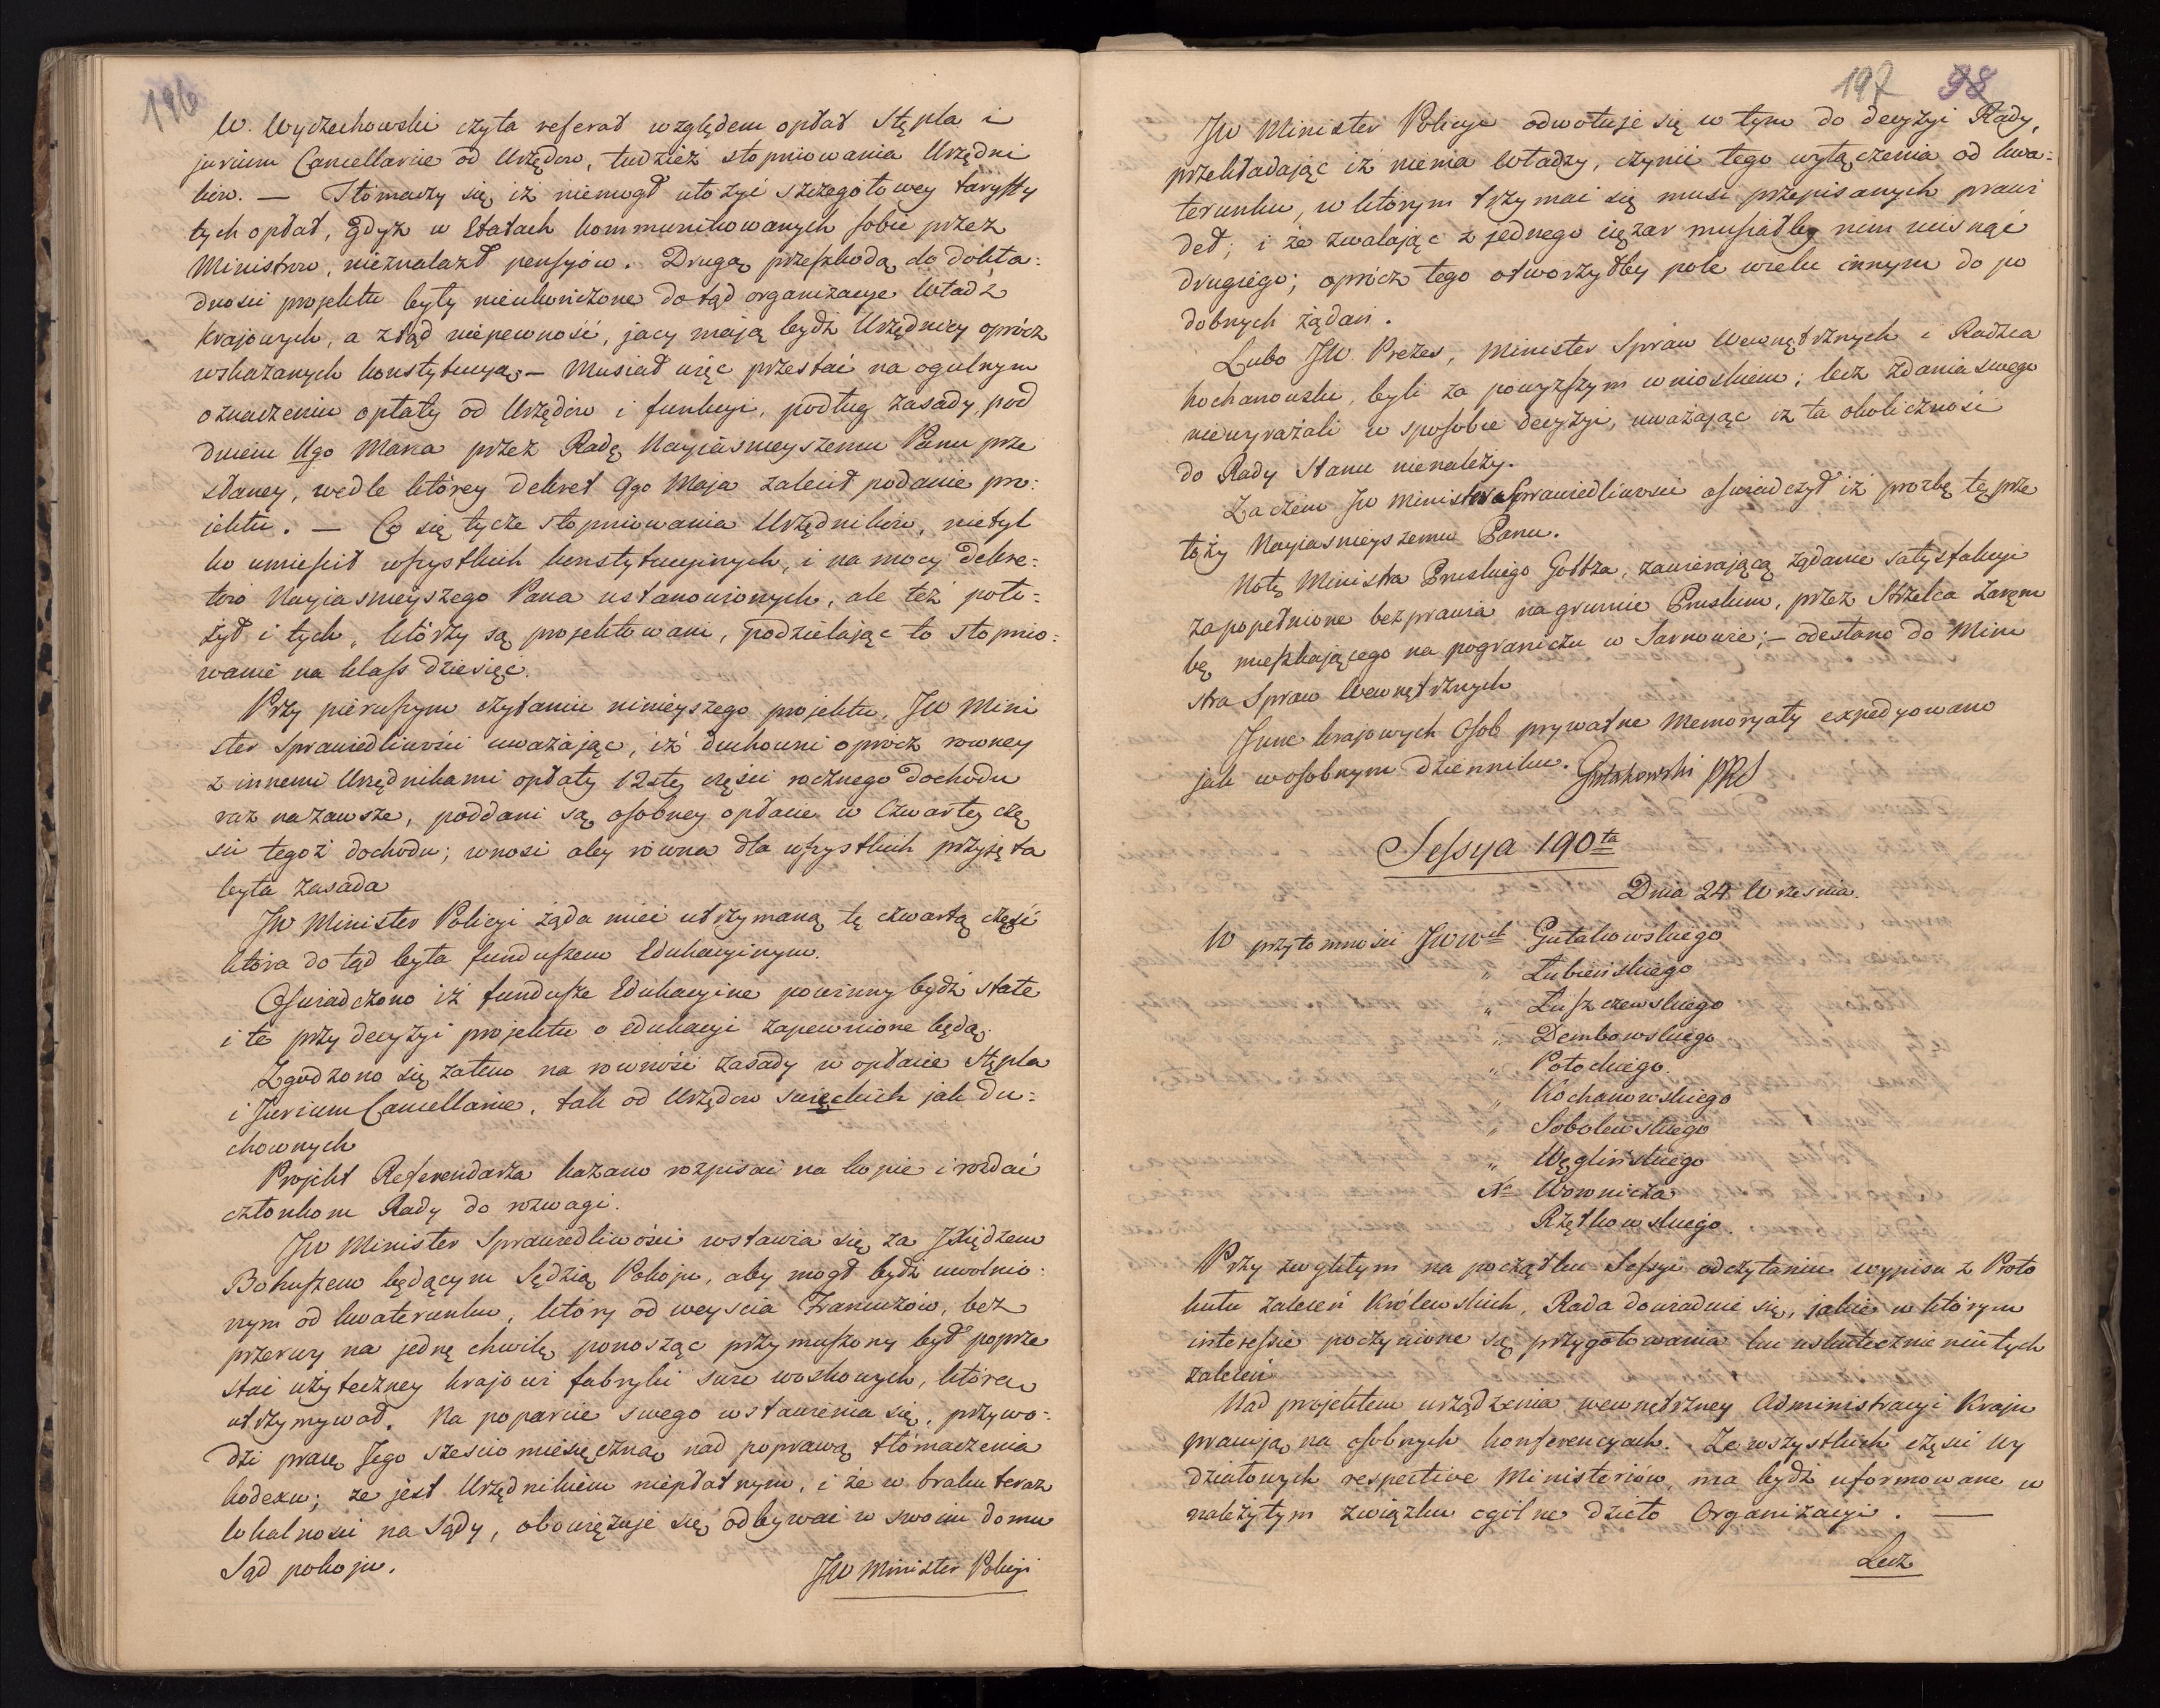 196
W. Wyczechowski czyta referat względem opłat Stępla i
jurium Cancellariae od Urzędow, tudzież stopniowania Urzędni
kow. — Tłómaczy się iż niemogł ułożyć szczegółowey taryffy
tych opłat, gdyż w Etatach kommunikowanych sobie przez
Ministrow, nieznalazł pensyiow. Drugą przeszkodą do dokła=
dności projektu były nieukończone dotąd organizacye Władz
Krajowych, a ztąd niepewność, jacy mają bydź Urzędnicy oprócz
wskazanych konstytucyą. — Musiał więc przestać na ogulnym
oznaczeniu opłaty od Urzędow i funkcyi, podług zasady, pod
dniem 11go Marca przez Radę Nayiasnieyszemu Panu prze
słaney, wedle którey dekret 9go Maja zalecił podanie pro=
jektu. — Co się tycze stopniowania Urzędnikow, nietyl
ko umieścił wszystkich konstytucyinych, i na mocy dekre=
tow Nayiasnieyszego Pana ustanowionych, ale też poło=
żył i tych, którzy są projektowani, podzielając to stopnio=
wanie na klass dziesięć.
Przy pierwszym czytaniu ninieyszego projektu, JW Mini
ster Sprawiedliwości uważając, iż duchowni oprócz rowney
z innemi Urzędnikami opłaty 12stey części rocznego dochodu
raz nazawsze, poddani są osobney opłacie w Czwartey czę
ści tegoż dochodu; wnosi aby równa dla wszystkich przyjęta
była zasada
JW Minister Policyi żąda mieć utrzymaną tę czwartą część
która do tąd była funduszem Edukacyinym.
Oświadczono iż fundusze Edukacyine powinny bydź stałe
i te przy decyzyi projektu o edukacyi zapewnione będą.
Zgodzono się zatem na rowność zasady w opłacie Stępla
i Jurium Cancellariae, tak od Urzędow swięckich jak Du=
chownych
Projekt Referendarza kazano rozpisać na kopie i rozdać
członkom Rady do rozwagi.
JW Minister Sprawiedliwości wstawia się za JXiędzem
Bohuszem będącym Sędzią Pokoju, aby mogł bydź uwolnio=
nym od kwaterunku, który od weyscia Francuzów, bez
przerwy na jednę chwilę ponosząc przymuszony był poprze
stać użyteczney krajowi fabryki swic woskowych, która
utrzymywał. Na poparcie swego wstawienia się, przywo=
dzi pracę Jego szesciomiesięczną nad poprawą tłómaczenia
kodexu; ze jest Urzędnikiem niepłatnym, i że w braku teraz
lokalności na sądy, obowięzuje się odbywać w swoim domu
Sąd pokoju.
JW Minister Policyi
197 98
JW Minister Policyi odwołuje się w tym do decyzyi Rady,
przekładając iż niema władzy, czynić tego wyłączenia od kwa=
terunku, w którym trzymać się musi przepisanych prawi
deł; i że zwalając z jednego ciężar musiałby nim ucisnąć
drugiego; oprócz tego otworzyłby pole wielu innym do po
dobnych żądań.
Lubo JW Prezes, Minister Spraw Wewnętrznych i Radzca
Kochanowski, byli za powyższym wnioskiem; lecz zdania swego
niewyrażali w sposobie decyzyi, uważając iż ta okoliczność
do Rady Stanu nienależy.
Zaczem JW Minister Sprawiedliwości oświadczył iż prozbę tę prze
łoży Nayiasnieyszemu Panu.
Notę Ministra Pruskiego Goltza, zawierającą żądanie satysfakcyi
za popełnione bezprawia na gruncie Pruskim, przez Strzelca Zarem
bę mieszkającego na pograniczu w Sarnowie; — odesłano do Mini
stra Spraw Wewnętrznych
Inne krajowych Osob prywatne Memoryały expedyowano
jak wosobnym dzienniku. Gutakowski PRS
Sessya 190ta
Dnia 24 Wrzesnia.
W przytomności JWWch Gutakowskiego
" Łubieńskiego
" Łuszczewskiego
" Dembowskiego
" Potockiego.
" Kochanowskiego
" Sobolewskiego
" Węglińskiego
Xa Woronicza
Rzętkowskiego.
Przy zwykłym na początku Sessyi odczytaniu wypisu z Proto
kułu zaleceń Królewskich, Rada dowiaduie się, jakie w którym
interessie poczynione są przygotowania ku uskutecznieniu tych
zaleceń
Nad projektem urządzenia wewnętrzney Administracyi Kraju
pracują na osobnych konferencyach. Ze wszystkich części wy
działowych respective Ministeriów, ma bydź uformowane w
należytym związku ogólne dzieło Organizacyi. —
Lecz